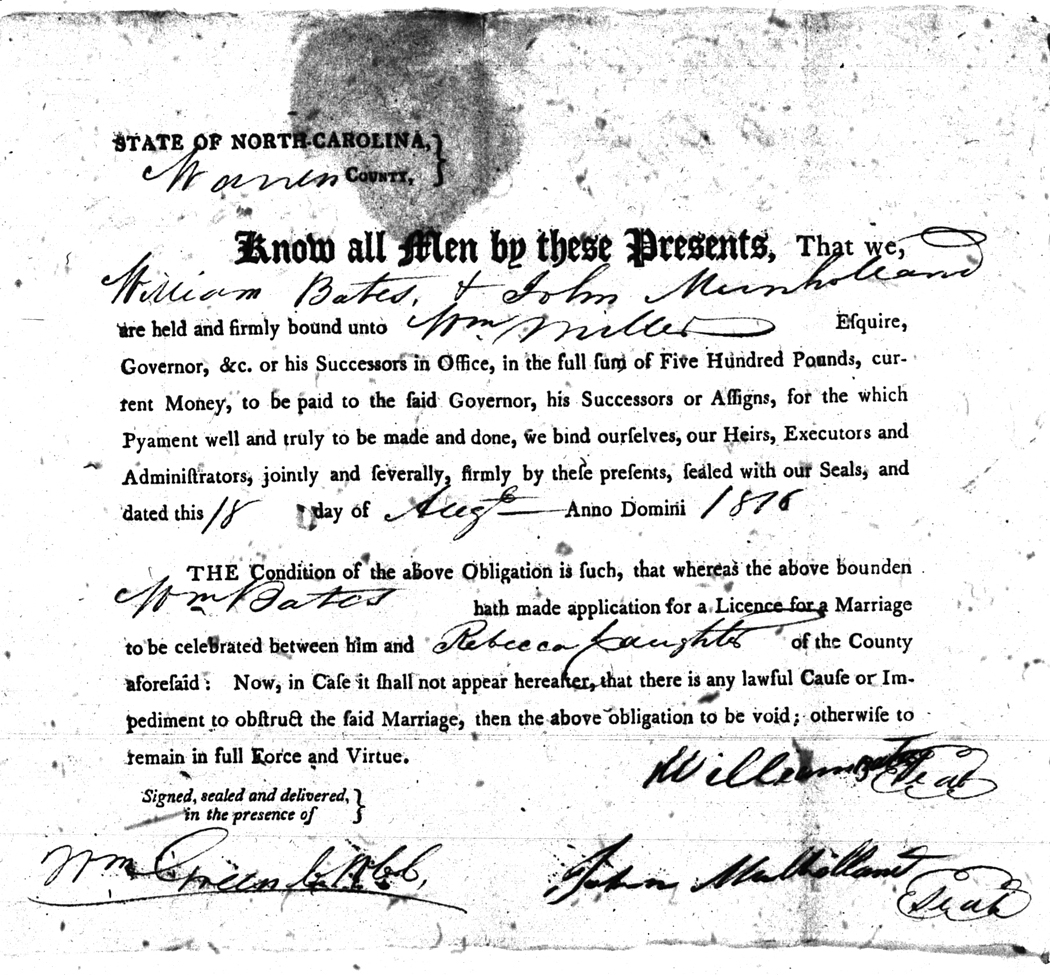 STATE OF NORTH-CAROLINA,
Warren COUNTY,
Know all Men by these Presents, That we,
William Bates, & John Munholland
are held and firmly bound unto Wm Miller Eſquire,
Governor, &c. or his Successors in Office, in the full ſum of Five Hundred Pounds, cur-
rent Money, to be paid to the ſaid Governor, his Successors or Aſſigns, for the which
Pyament well and truly to be made and done, we bind ourſelves, our Heirs, Executors and
Adminiſtrators, jointly and ſeverally, firmly by theſe preſents, ſealed with our Seals, and
dated this 18 day of Augt Anno Domini 1816
THE Condition of the above Obligation is ſuch, that whereas the above bounden
Wm Bates hath made application for a Licence for a Marriage
to be celebrated between him and Rebecca of the County
aforeſaid: Now, in Caſe it ſhall not appear hereafter, that there is any lawful Cauſe or Im-
pediment to obſtruct the ſaid Marriage, then the above obligation to be void; otherwiſe to
remain in full Force and Virtue.
William Bates Seal
Signed, sealed and delivered,
in the presence of
Wm Green
John Mulholland Seal